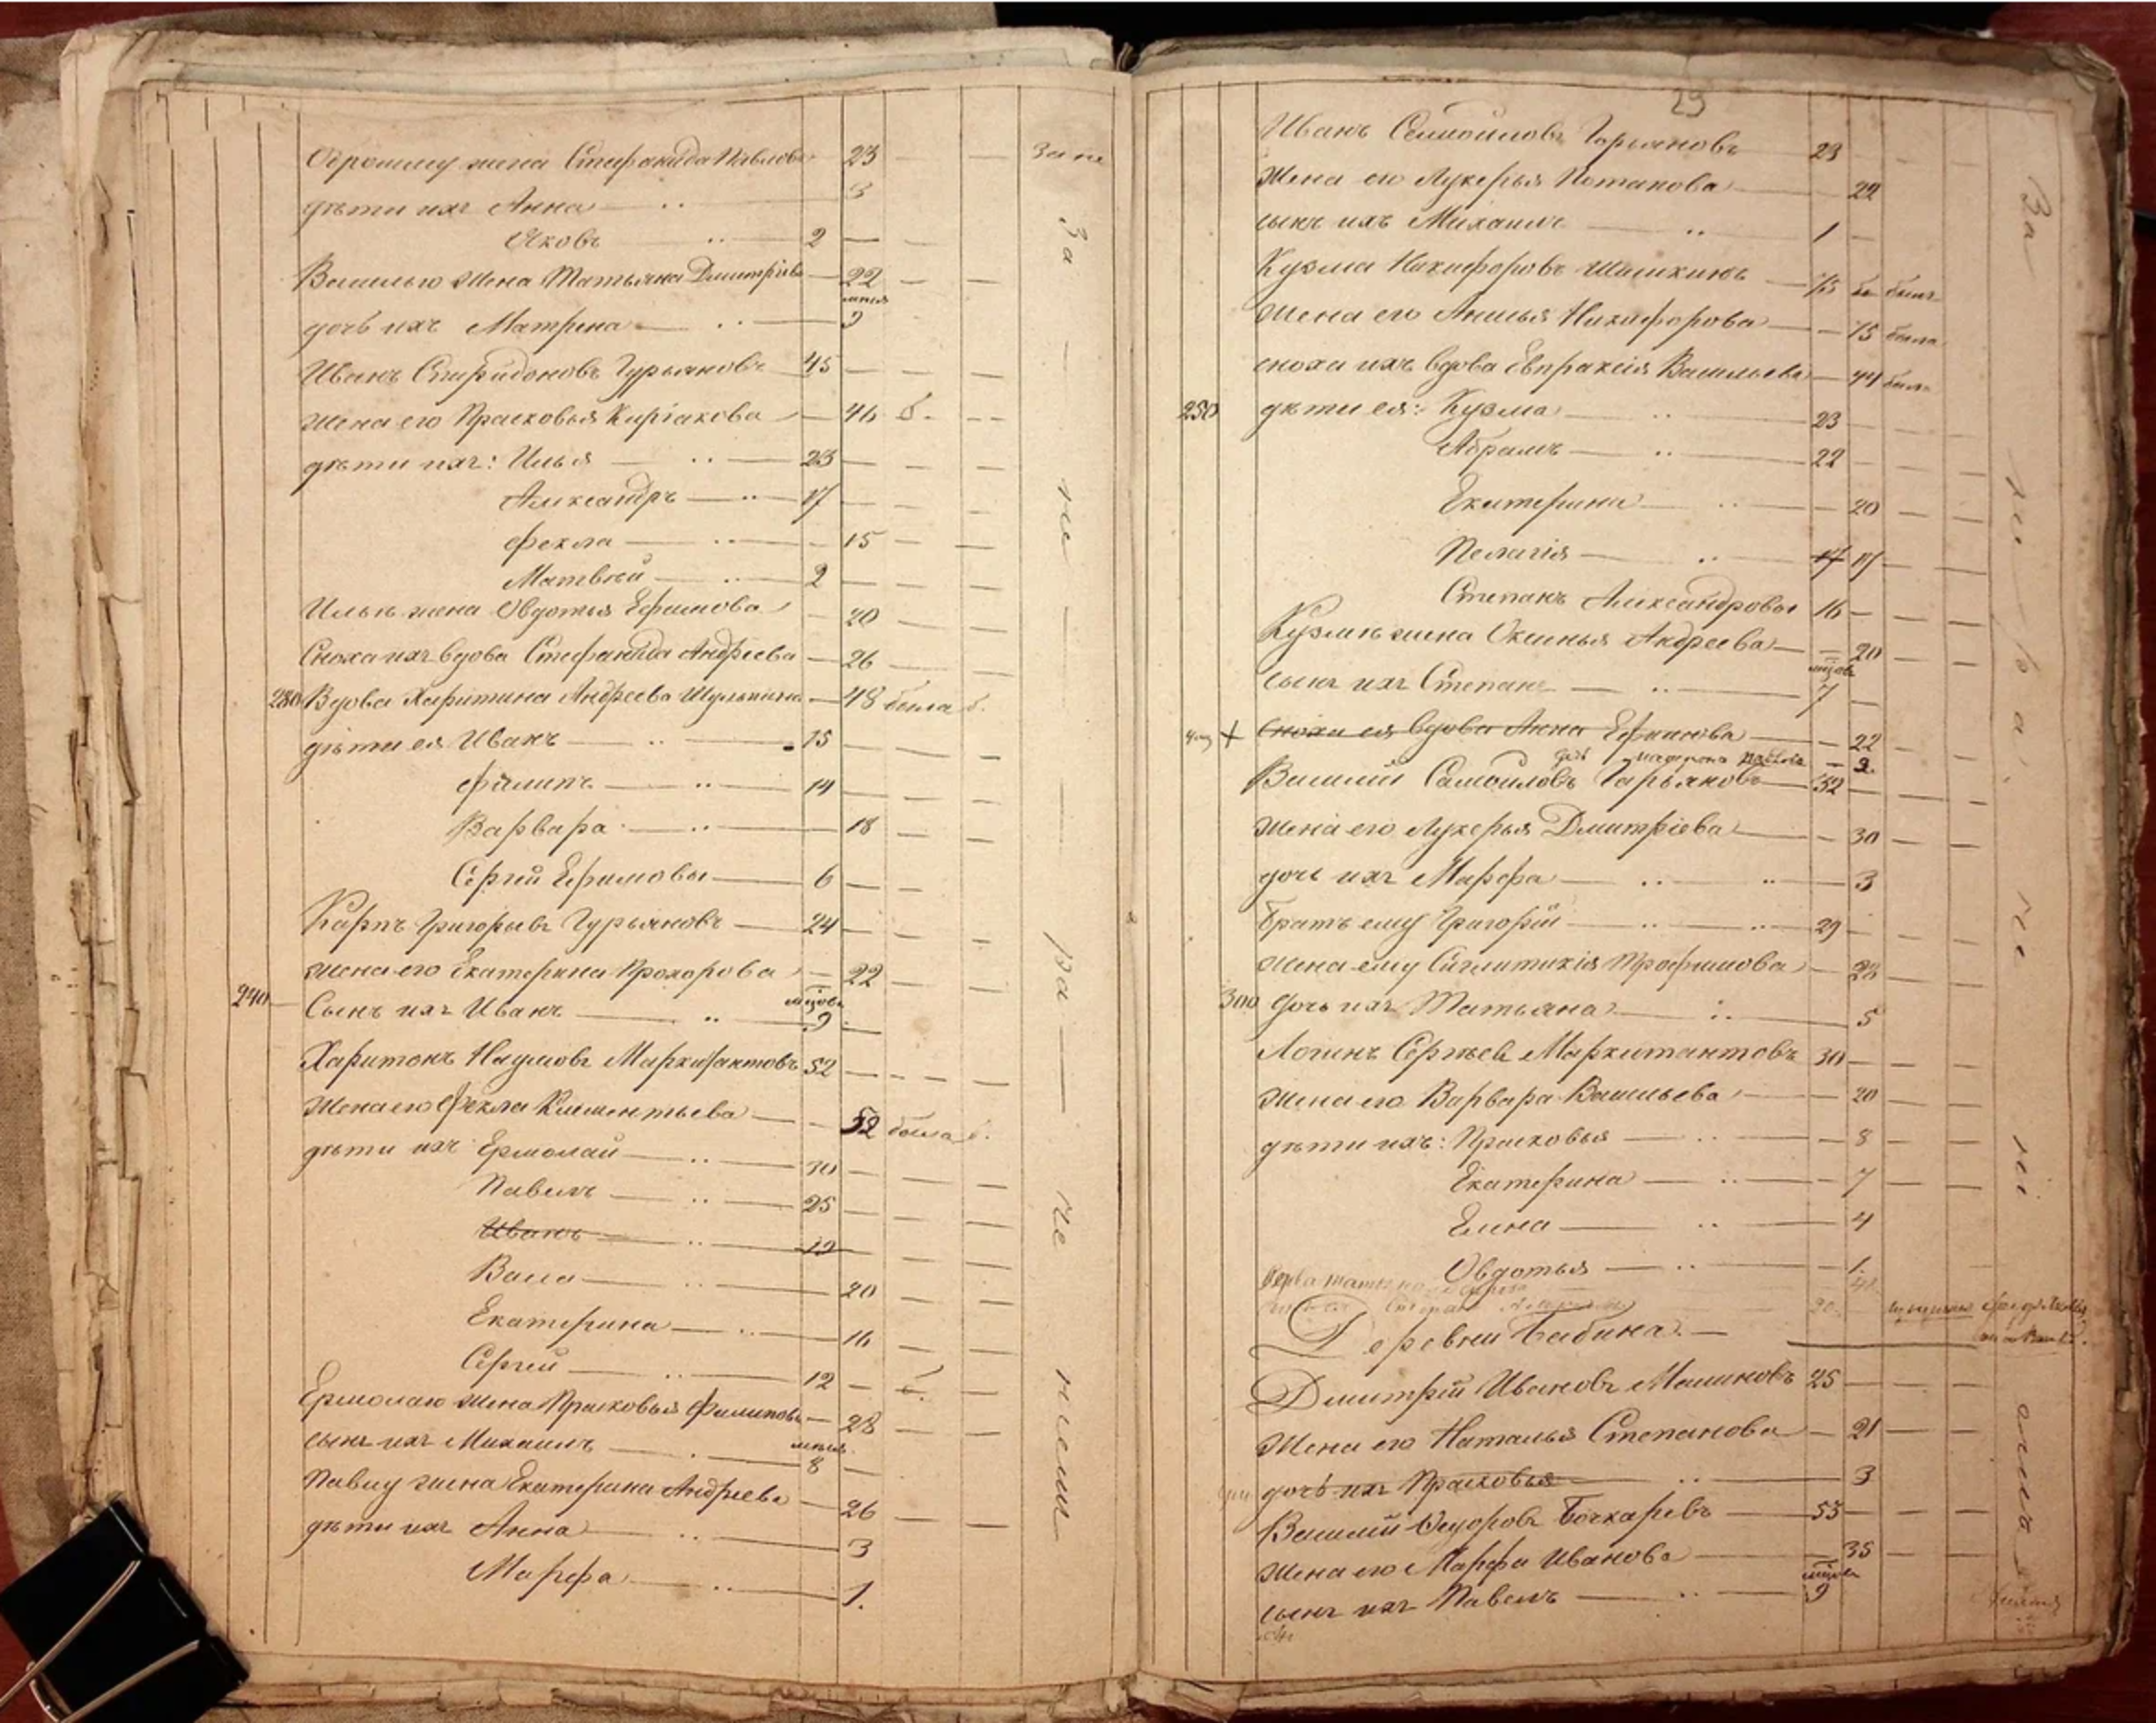 жена Стефанида Павлова 23 За не
дѣти ихъ Анна 3
Яковъ 2
Василью жена Татьяна Дмитрiева 22
дочь ихъ Матрена 9
Иванъ Спиридоновъ Гурьяновъ 45
жена его Прасковья Кирiакова 46 б.
дѣти ихъ: Илья 23
Александръ 17
Фекла 15
Матвѣй 2
Ильѣ жена Овдотья Ефимова 20
Сноха ихъ вдова Стефанида Андреева 26
280 Вдова Харитина Андреева 48 была б.
дѣти ея Иванъ 15
Филипъ 14
Варвара 18
Сергiй Ефимовы 6
Карпъ Григорьевъ Гурьяновъ 24
жена его Екатерина Прохорова 22
240 Сынъ ихъ Иванъ мцовъ 9
Харитонъ Наумовъ 52
жена его Фекла Климентьева 52 была б.
дѣти ихъ Ермолай 30
Павелъ 25
Иванъ 19
Васса 20
Екатерина 16
Сергей 12 б.
Ермолаю жена Прасковья Филипова 28
сынъ ихъ Михаилъ 8
Павлу жена Екатерина Андреева 26
дѣти ихъ Анна 3
Марфа 1.
За не ра не нiем
29
Иванъ Самойловъ Гарьяновъ 23
жена его Лукерья Потапова 22
сынъ ихъ Михаилъ 1
Кузма Никифоровъ Шишкинъ 75 былъ
жена его Никифорова 75 была
сноха ихъ вдова Евпраксiя Васильева 44 была
250 дѣти ея: Кузма 23
Абрамъ 22
Екатерина 20
Пелагiя 17 17
Степанъ Александровы 16
Кузмѣ жена Оксинья Андреева 20
сынъ ихъ Степанъ мцовъ 7
Сноха ея вдова Анна Ефимова 22
дочь 2.
Василiй Самойловъ Гарьяновъ 32
жена его Лукерья Дмитрiева 30
дочь ихъ Марфа 3
Братъ ему Григорiй 29
жена ему Сиглитикiя Трофимова 28
300 дочь ихъ Татьяна 5
Логинъ Сергѣевъ Маркитантовъ 30
жена его Варвара Васильева 20
дѣти ихъ: Прасковья 8
Екатерина 7
Елена 4
Овдотья 1.
Деревни Бабина.
Дмитрiй Ивановъ Машиновъ 25
жена его Наталья Степанова 21
дочь ихъ Прасковья 3
Василiй Федоровъ Бочкаревъ 53
жена его Марфа Иванова 35
сынъ ихъ Павелъ мцовъ 9
За